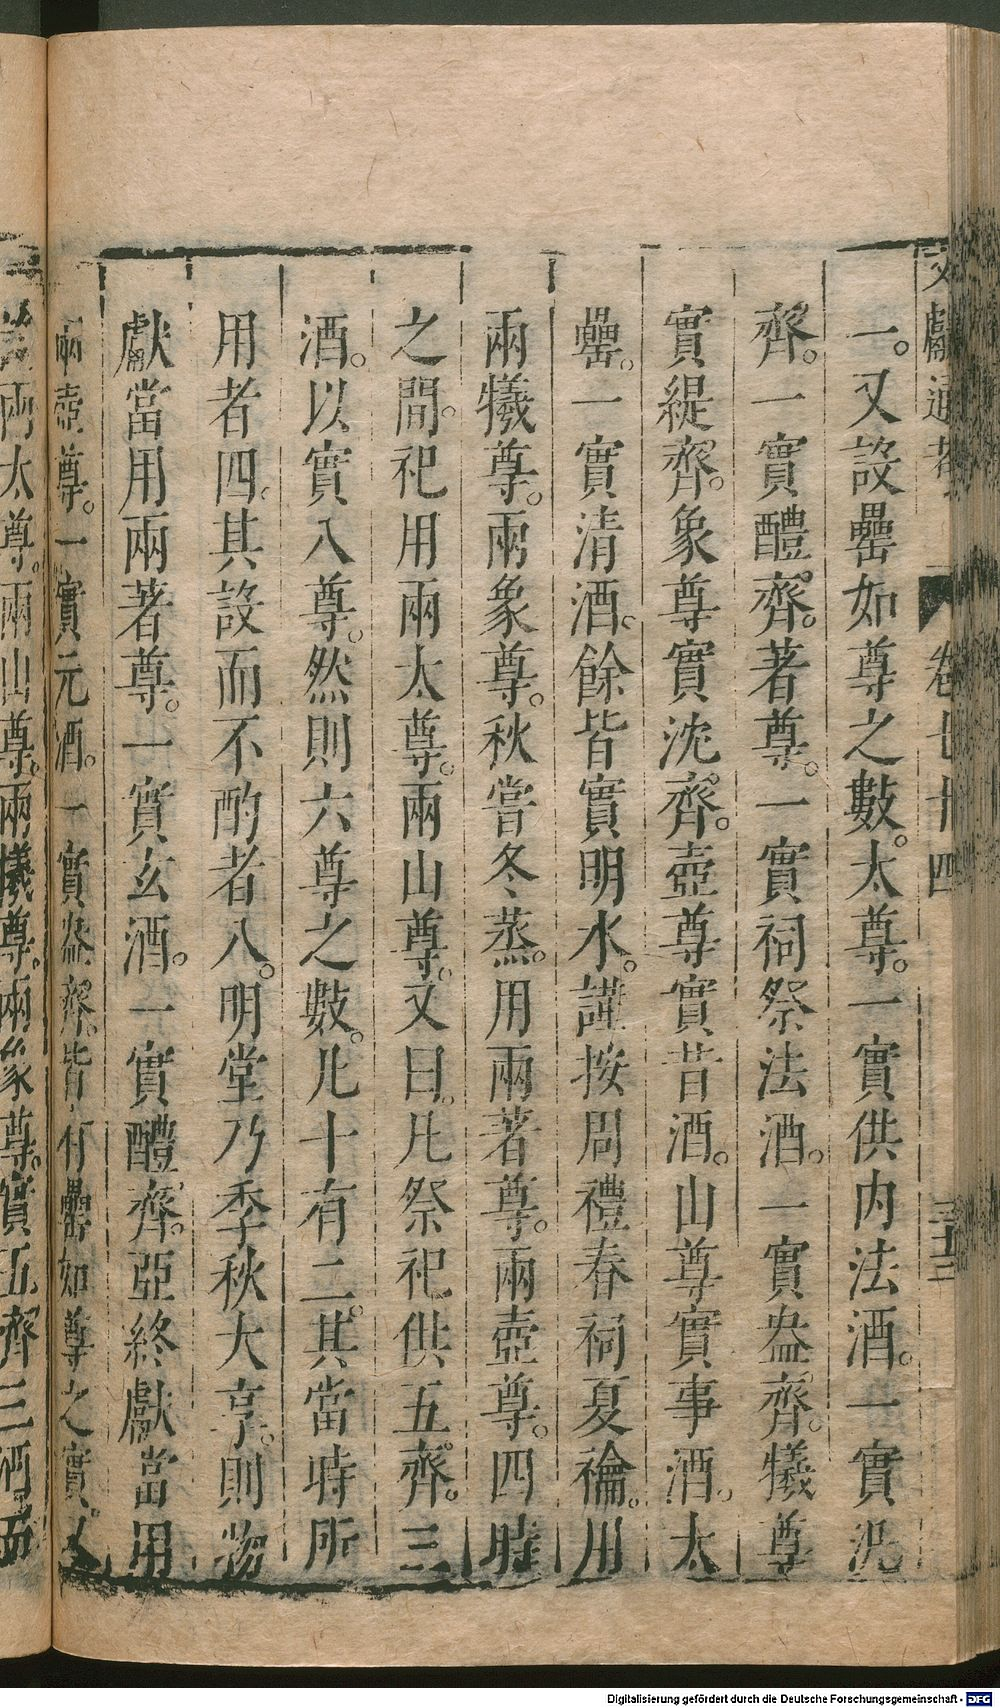 文獻通考 卷七十四 三十二
一。又設罍如尊之數。太尊。一實供内法酒。一實汎
齊。一實醴齊。著尊。一實祠祭法酒。一實盎齊。犧尊
實緹齊。象尊實沈齊。壺尊實昔酒。山尊實事酒。太
罍。一實清酒。餘皆實明水。謹按周禮春祠夏禴。用
兩犧尊。兩象尊。秋嘗冬蒸。用兩著尊。兩壺尊。四時
之間。祀用兩太尊。兩山尊。又曰。凡祭祀供五齊。三
酒。以實八尊。然則六尊之數。凡十有二。其當時所
用者四。其設而不酌者八。明堂乃季秋大享。則物
獻當用兩著尊。一實玄酒。一實醴齊。亞終獻當用
兩壺尊。一實元酒。一實盎齊。皆有罍如尊之實。又
設兩太尊。兩山尊。兩犧尊。兩象尊。實五齊三酒而
Digitalisierung gefördert durch die Deutsche Forschungsgemeinschaft - DFG